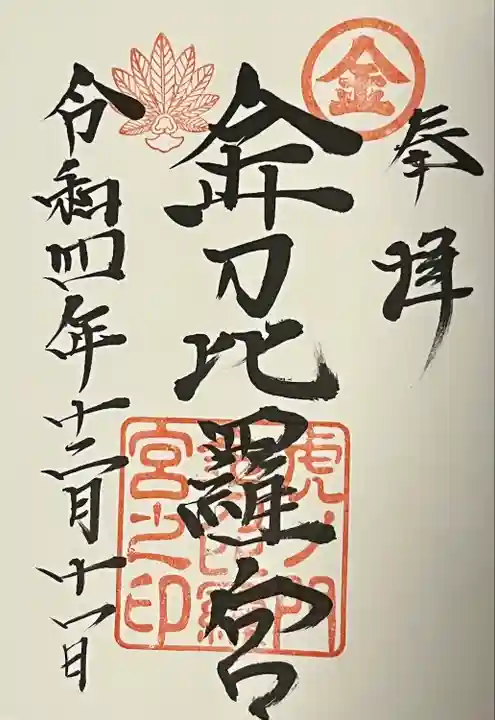 金
奉拝
金刀比羅宮
令和四年十二月十一日
虎ノ門
金刀比羅
宮之印